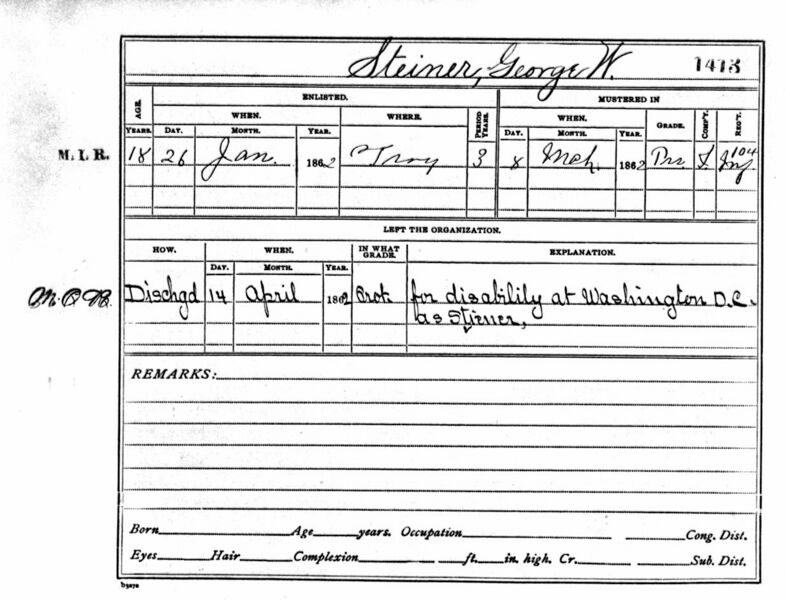 Steiner, George W. 1413
ENLISTED. MUSTERED IN
AGE. WHEN. WHERE. PERIOD YEARS. WHEN. GRADE. COMP'Y. REG'T.
YEARS. DAY. MONTH. YEAR. DAY. MONTH. YEAR.
M. I. R. 18 26 Jan. 1862 Troy 3 8 Mch. 1862 104
LEFT THE ORGANIZATION.
HOW. WHEN. IN WHAT GRADE. EXPLANATION.
DAY. MONTH. YEAR.
Dischgd 14 April 1862 for disability at Washington D.C.
as Stiener,
REMARKS:
Born Age years. Occupation Cong. Dist.
Eyes Hair Complexion ft. in. high. Cr. Sub. Dist.